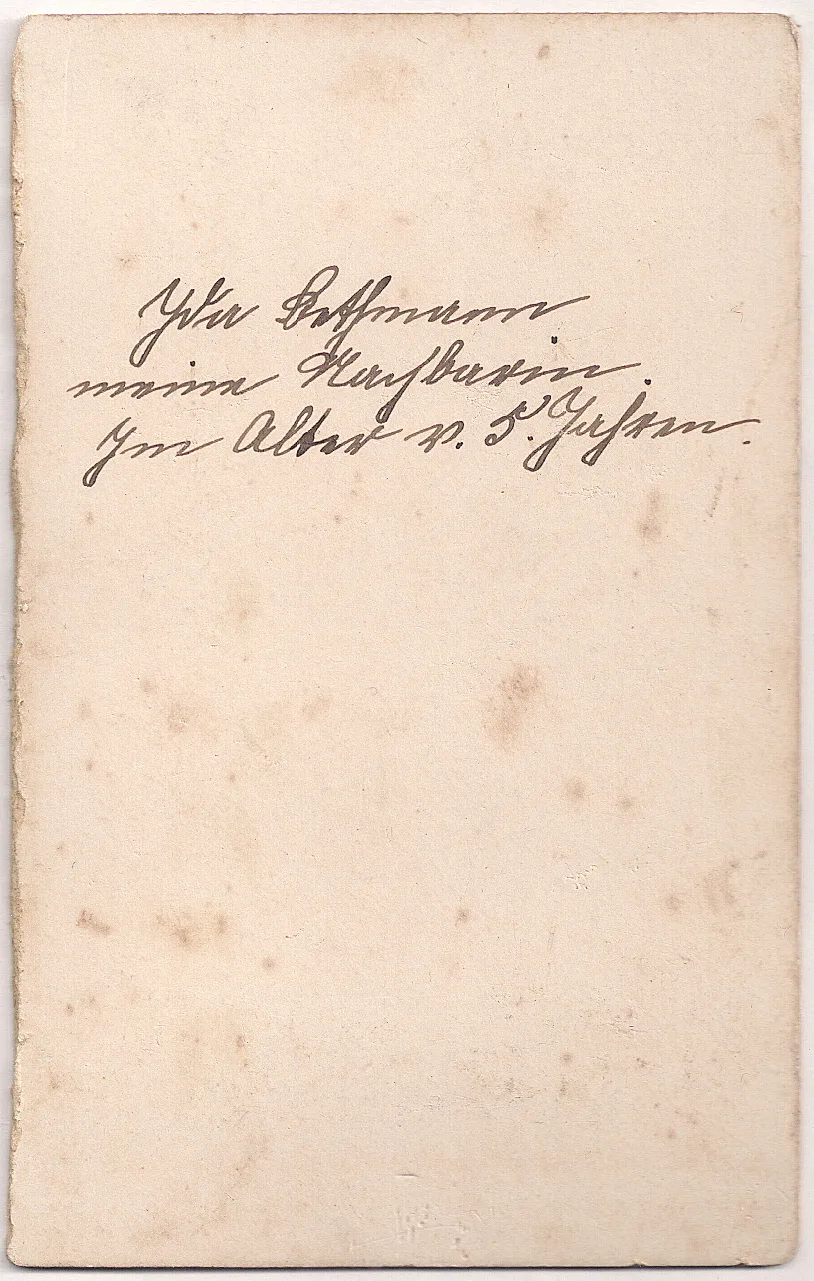 Ida Bethmann
meine Nachbarin.
Im Alter v. 5. Jahren.